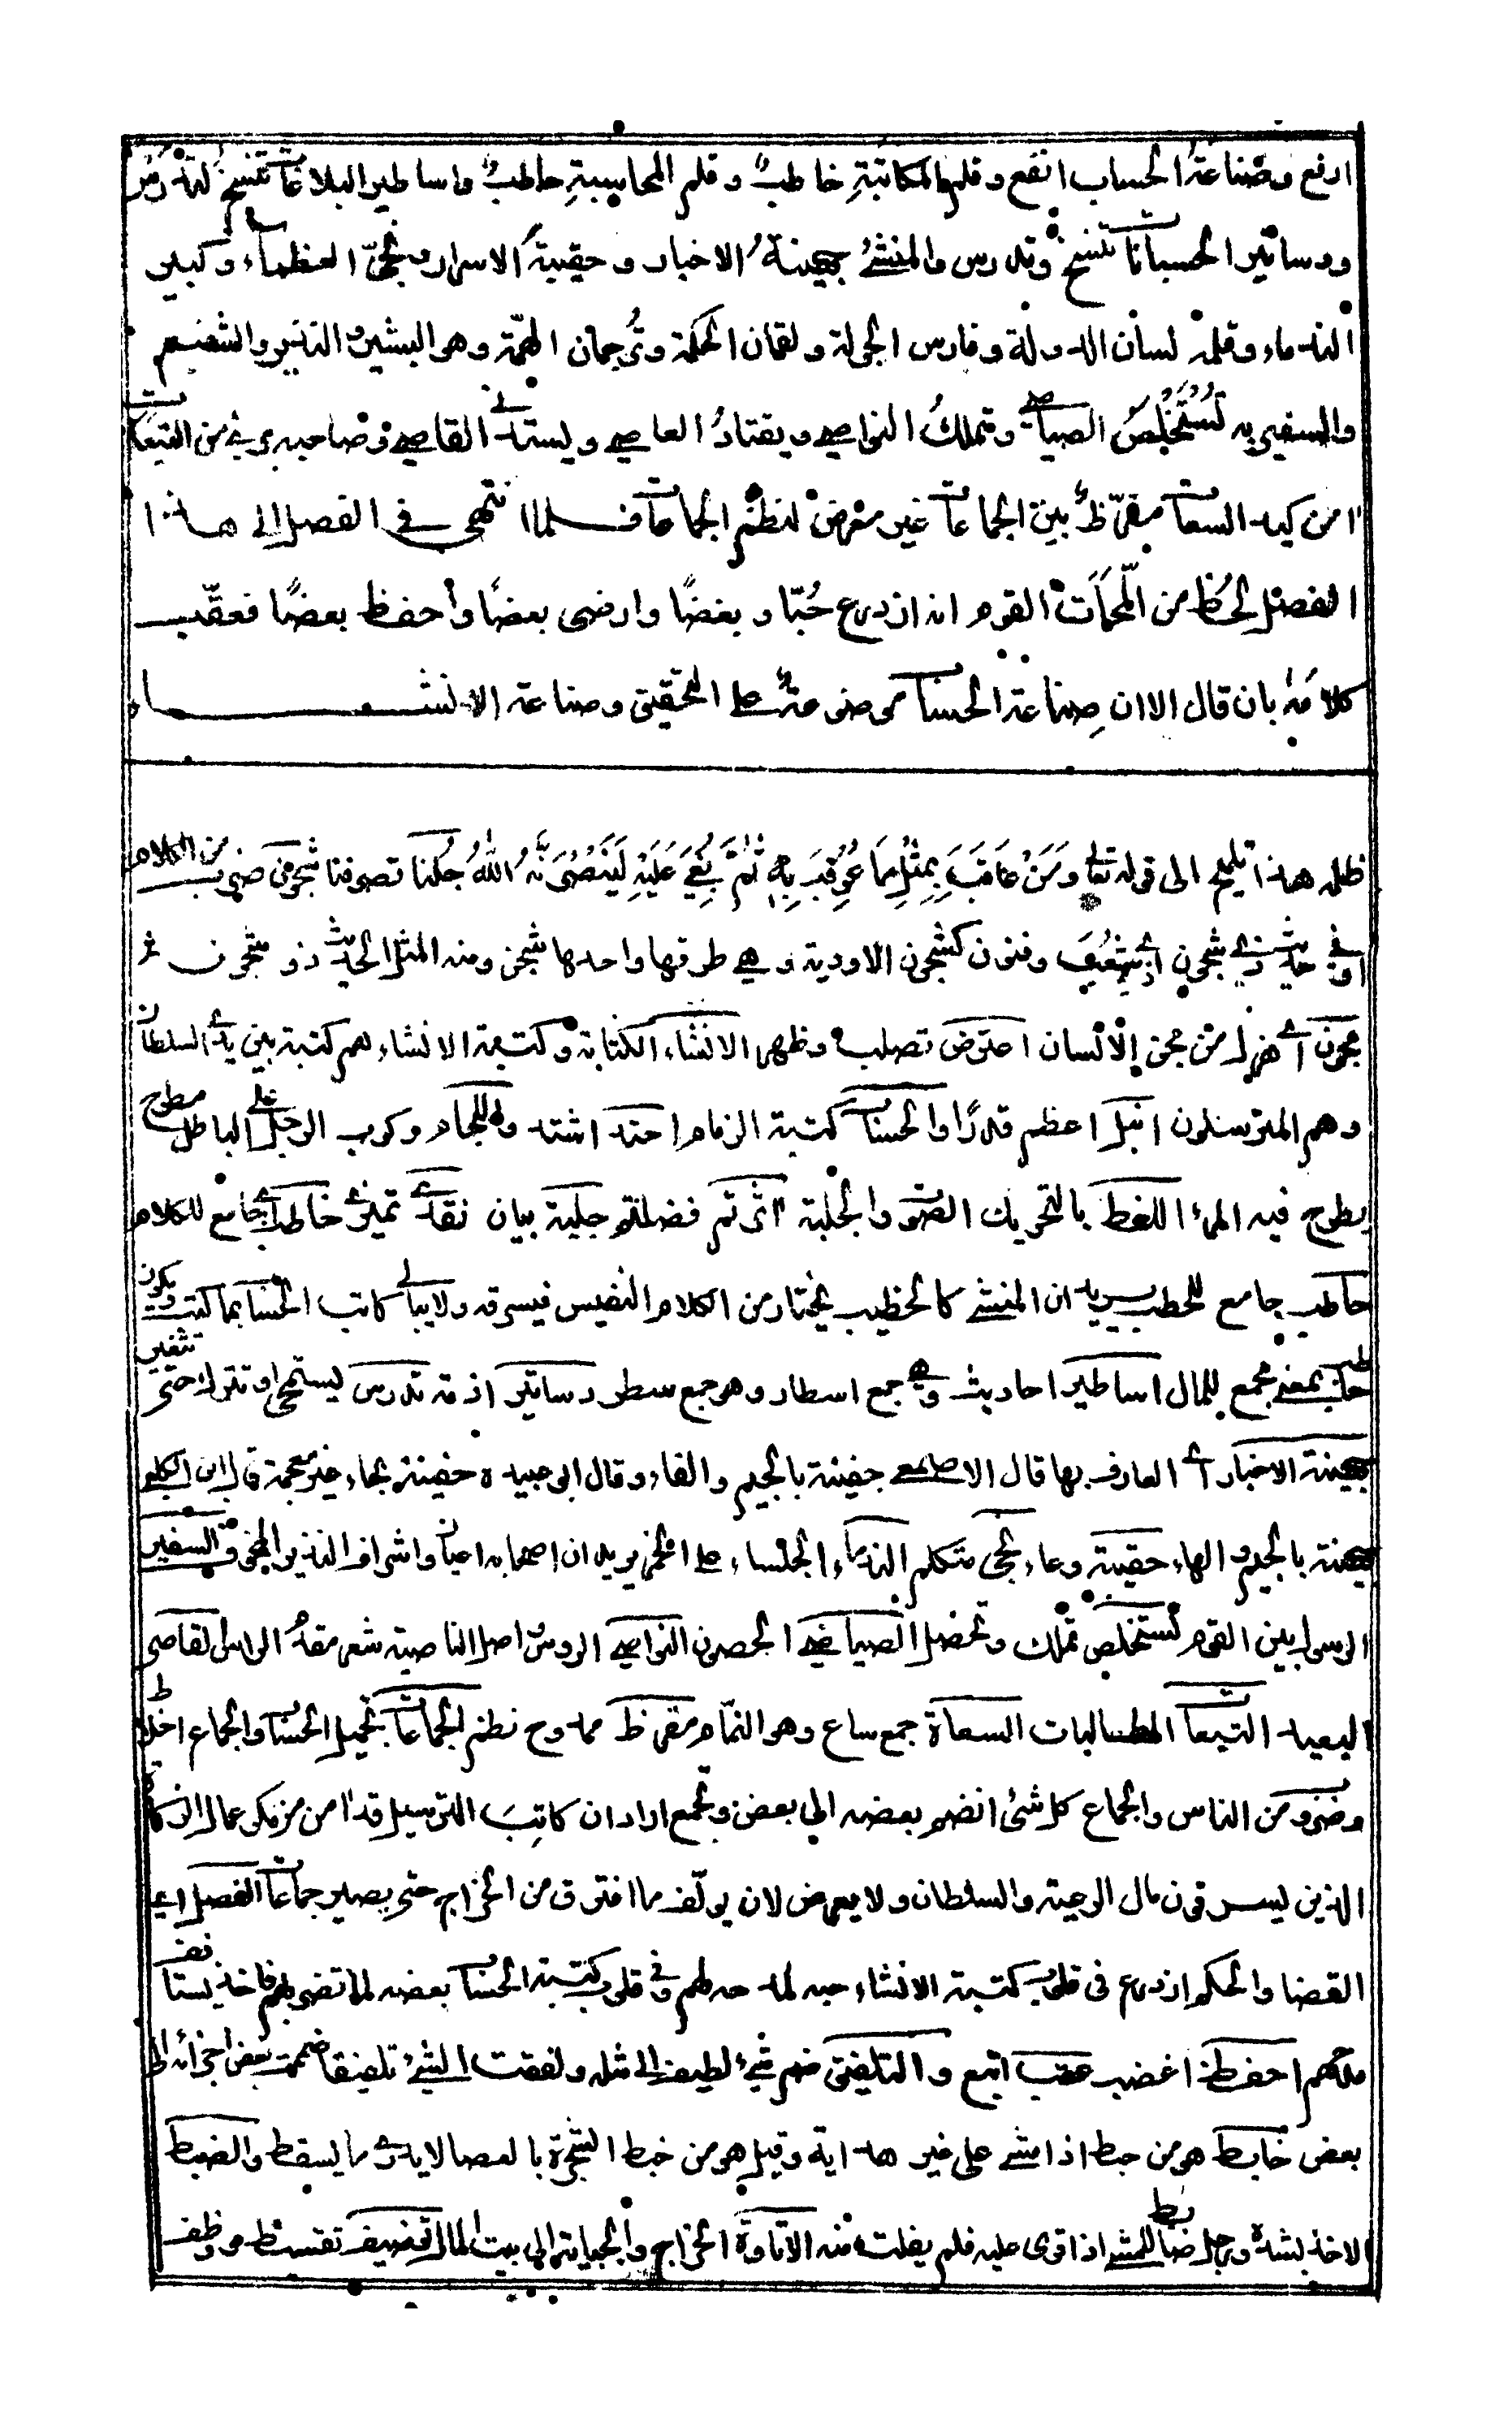 ارفع وصناعةُ الحساب انفع وقلم المكاتبةِ خاطبٌ وقلم المحاسبةِ حاطبٌ واساطير البلاغات تنسخ لتدرس
ودساتير الحسبانات تنسخ وتدرس والمنشئُ جهينةُ الاخبار وحقيبةُ الاسرار ونجيّ العظماء وكبير
الندماء وقلمه لسان الدولة وفارس الجولة ولقمان الحكمة وترجمان الهمّة وهو البشير والنذير والشفيع
والسفير به تُستخلص الصياصي وتملك النواصي ويقتاد العاصي ويستدنى القاصي وصاحبه برئ من التبعات
امن كيد السعات مقرّظ بين الجماعات غير معرض لنظم الجماعات فلما انتهى في الفصل الى هذا
الفصل لحظ من لمحات القوم انه ازدرع حُبّا وبغضًا وارضى بعضًا واحفظ بعضًا فعقّب
كلامَهُ بان قال الا ان صِناعة الحساب موضوعةٌ على التحقيق وصناعة الانشاء
ظلمه هذا تلميح الى قوله تعالى وَمَنْ عَاقَبَ بِمِثْلِ مَا عُوقِبَ بِهِ ثُمَّ بُغِيَ عَلَيْهِ لَيَنْصُرَنَّهُ اللهُ جُلنا تصرفنا شجون ضروب من الكلام
او في حديث ذي شجون اي شعب وفنون كشجون الاودية وهي طرقها واحدها شجن ومنه المثل الحديث ذو شجون
مجون اي هزل من مجن الانسان اذا تصلب وظهر الانشاء الكتابة وكتبة الانشاء هم كتبة بين يدي السلطان
وهم المترسلون انبل اعظم قدرًا والحساب كتبة الزمام احتد اشتد وركوب الرجل على الباطل مطرح
يطرح فيه المرء اللغط بالتحريك الصوت والجلبة جلية بيان نقد تميز خاطب جامع للكلام
حاطب جامع للحطب يريد ان المنشئ كالخطيب يختار من الكلام النفيس فيسرقه ولا يبالي كاتب الحساب بما كتب ويكون
حاطب بمعنى مجمع للمال اساطير احاديث وهي جمع اسطار وهو جمع سطر دساتير تدرس يستمحى او تترك حتى تتغير
جهينة الاخبار اي العارف بها قال الاصمعي جفينة بالجيم والفاء وقال ابو عبيدة حفينة بحاء غير معجمة قال ابن الكلبي
جهينة بالجيم والهاء حقيبة وعاء نجي متكلم الندماء الجلساء على الخمر يريد ان اصحابه اعيان واشراف النذير المخوف السفير
الرسول بين القوم تستخلص تملك وتحصل الصياصي الحصون النواصي الروس اصل الناصية شعر مقدم الراس القاصي
البعيد التبعات المطالبات السعاة جمع ساع وهو النمّام مقرظ ممدوح نظم الجماعات تجميل الحساب والجماع اخلاط
وضروب من الناس والجماع كل شئ انضم بعضه الى بعض وتجمع اراد ان كاتب الترسيل قد امن من مكر عمال الزكاة
الذين يسرقون مال الرعية والسلطان ولا يعرض لان يولّف ما افترق من الخراج حتى يصير جماعات الفصل اي
القضا والحكم ازدرع في قلوب كتبة الانشاء حبه لمدحه لهم وفي قلوب كتبة الحساب بعضه لما
مدحهم احفظ اغضب عقب اتبع والتلفيق ضم شئ لطيف الى مثله ولفقت الشئ تلفيقا ضممت بعض اجزائه الى
بعض خابط هو من خبط اذا مشى على غير هداية وقيل هو من خبط الشجرة بالعصا لا يدرى ما يسقط والضبط
الاخذ بشدة ورجل ضابط للشئ اذا قوى عليه فلم يفلت منه الاتاوة الخراج والجباية الى بيت المال توظيف تقسيط موظف